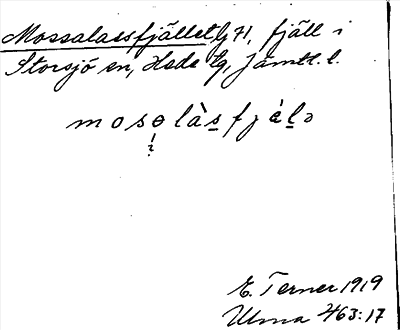 Mossalassfjället lj 71, fjäll i
Storsjö sn, Hede tg, Jämtl. l.
mosɵlàs̲fjál̲ə
i
E. Terner 1919
Ulma 463:17